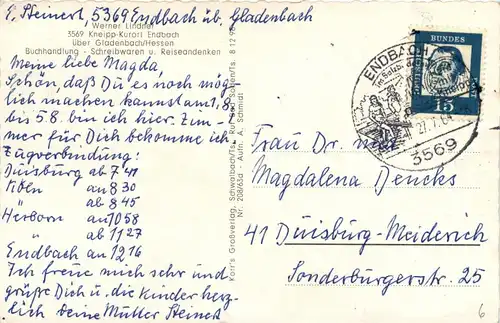 E. Steinert, 5369 Endbach üb. Gladenbach
Werner Lindner
3569 Kneipp-Kurort Endbach
über Gladenbach/Hessen
Buchhandlung - Schreibwaren u. Reiseandenken
Meine liebe Magda,
Schön, daß Du es noch mög
lich machen kannst am 1.8
bis 5.8. bin ich hier. Zim-
mer für Dich bekomme ich
Zugverbindung:
Duisburg ab 7 41
Köln an 8 30
" ab 8 45
Herborn an 10 58
" ab 11 27
Endbach an 12 16
Ich freue mich sehr und
grüße Dich u. die Kinder herz-
lich Deine Mutter Steinert
Korr's Großverlag, Schwalbach/Ts.
Nr. 208/63d - Aufn. A. Schmidt
DEUTSCHE BUNDESPOST
15
ENDBACH
27.7.64
3569
Frau Dr. med
Magdalena Dencks
41 Duisburg-Meiderich
Sonderburgerstr. 25
6